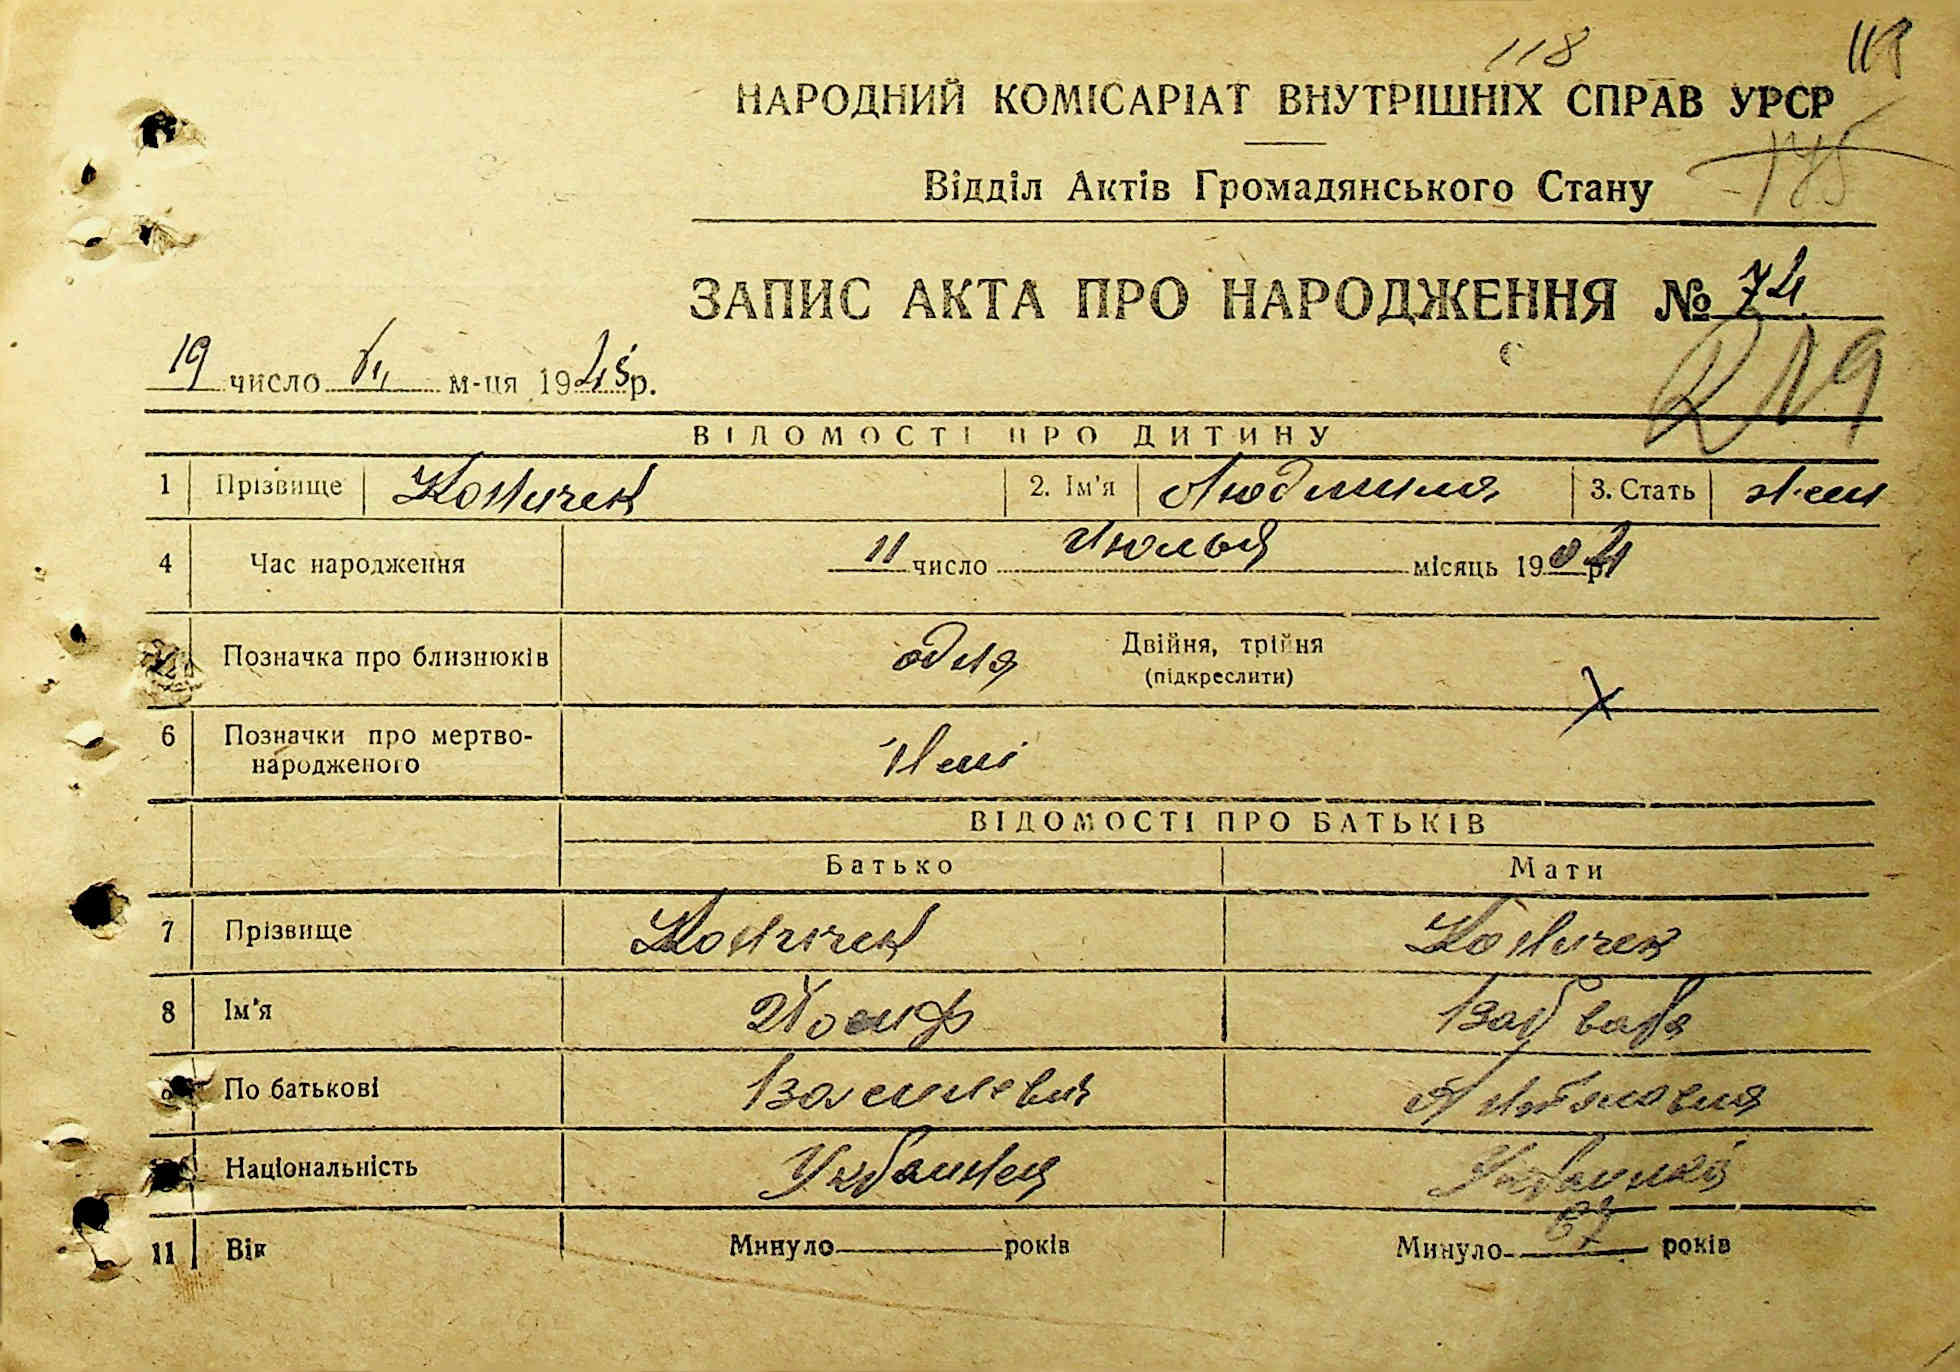 118
119
НАРОДНИЙ КОМІСАРІАТ ВНУТРІШНІХ СПРАВ УРСР
Відділ Актів Громадянського Стану
ЗАПИС АКТА ПРО НАРОДЖЕННЯ № 74
19 число м-ця 1945 р.
219
ВІДОМОСТІ ПРО ДИТИНУ
1 Прізвище 2. Ім'я Людмила 3. Стать жен
4 Час народження 11 число Июлья місяць 1904 р.
Позначка про близнюків одна Двійня, трійня
(підкреслити)
6 Позначки про мертво-
народженого Нет
ВІДОМОСТІ ПРО БАТЬКІВ
Батько Мати
7 Прізвище
8 Ім'я Йосиф Варвара
По батькові Василевич
Національність Украинец Украинка
11 Вік Минуло років Минуло 67 років